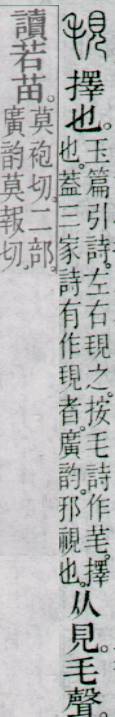 覒 擇也。玉篇引詩。左右覒之。按毛詩作芼。擇也。蓋三家詩有作覒者。廣韵。邪視也。从見。毛聲。
讀若苗。莫袍切。二部。廣韵莫報切。